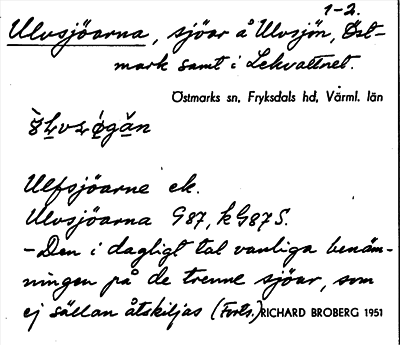 1-2.
Ulvsjöarna, sjöar å Ulvsjön, Öst-
mark samt i Lekvattnet.
Östmarks sn, Fryksdals hd, Värml. län
Ulfsjöarne ek.
Ulvsjöarna G87, kG87S.
- Den i dagligt tal vanliga benäm-
ningen på de trenne sjöar, som
ej sällan åtskiljas (Forts.) RICHARD BROBERG 1951